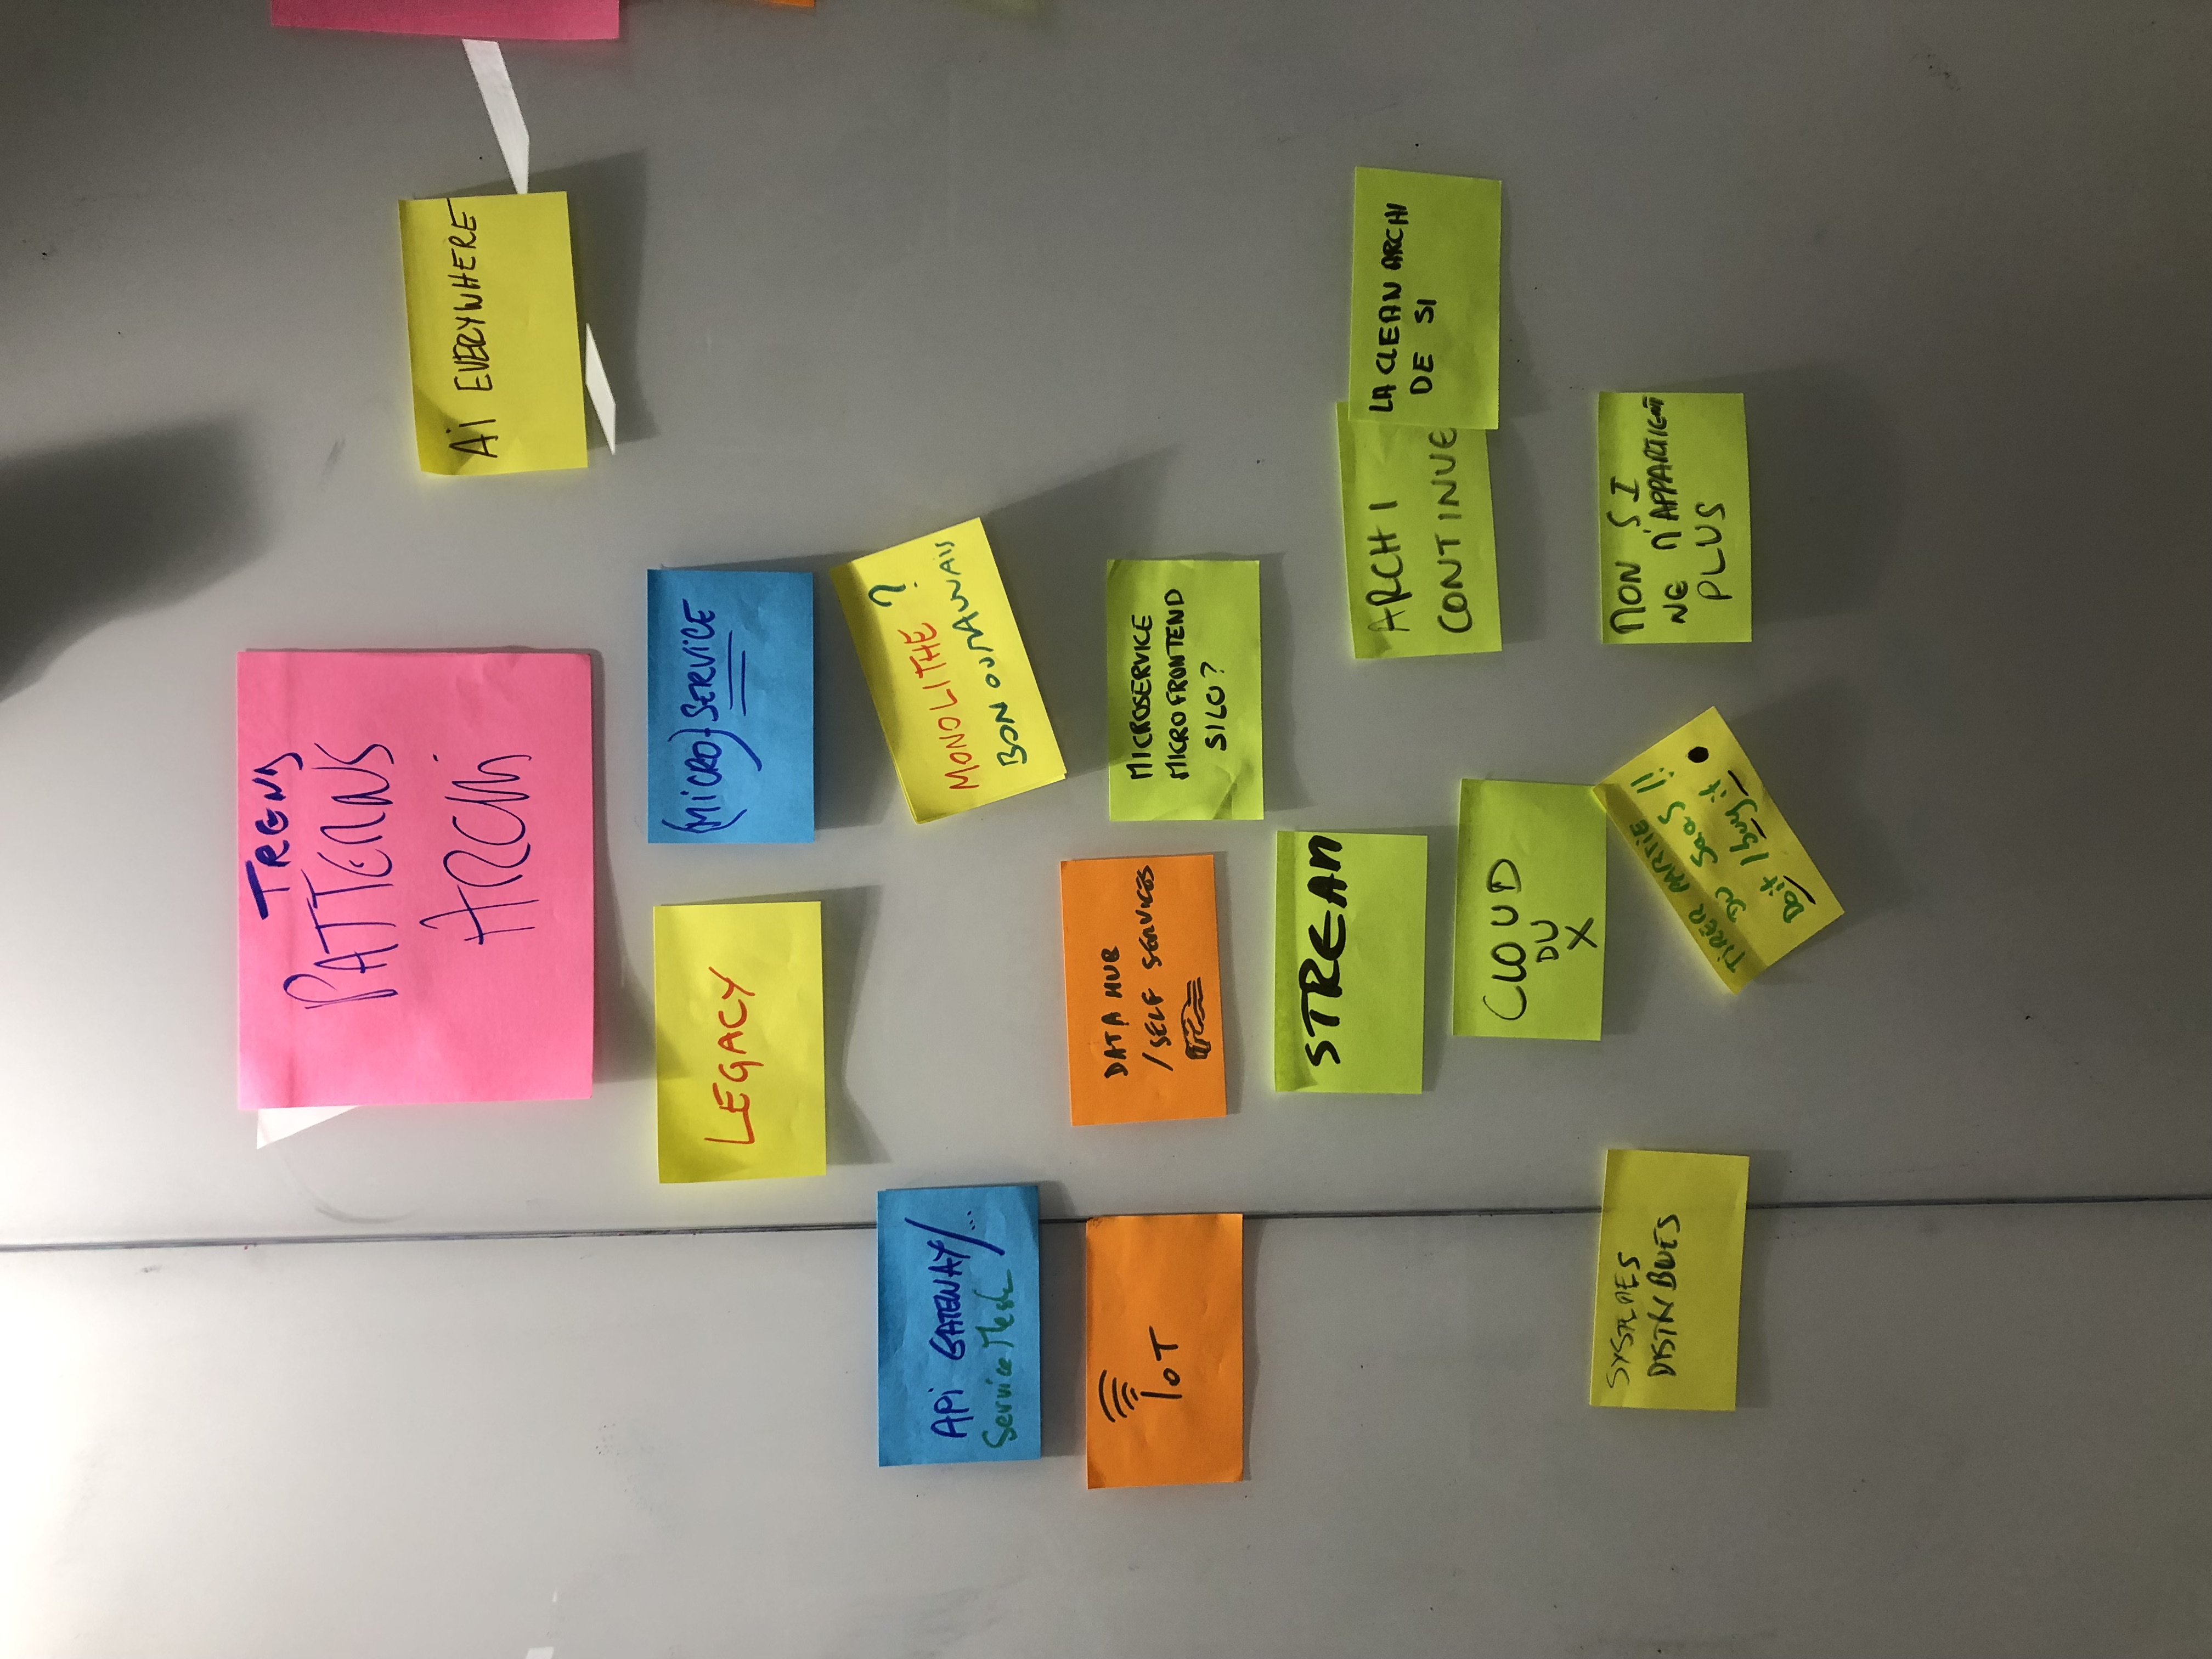 TREND
PATTERNS
ARCHi
Ai EVERYWHERE
LEGACY
(MiCRO) SERViCE
APi GATEWAY/...
Service Mesh
MONOLITHE ?
BON OU MAUVAIS
IoT
DATA HUB
/SELF SERVICES
MICROSERVICE
MICROFRONTEND
SILO?
STREAM
ARCHI
CONTINUE
LA CLEAN ARCHI
DE SI
CLOUD
DU
X
SYSTEMES
DISTRIBUES
TIRER PARTIE
DU SaaS !!
Do it / buy it
MON SI
NE M'APPARTIENT
PLUS